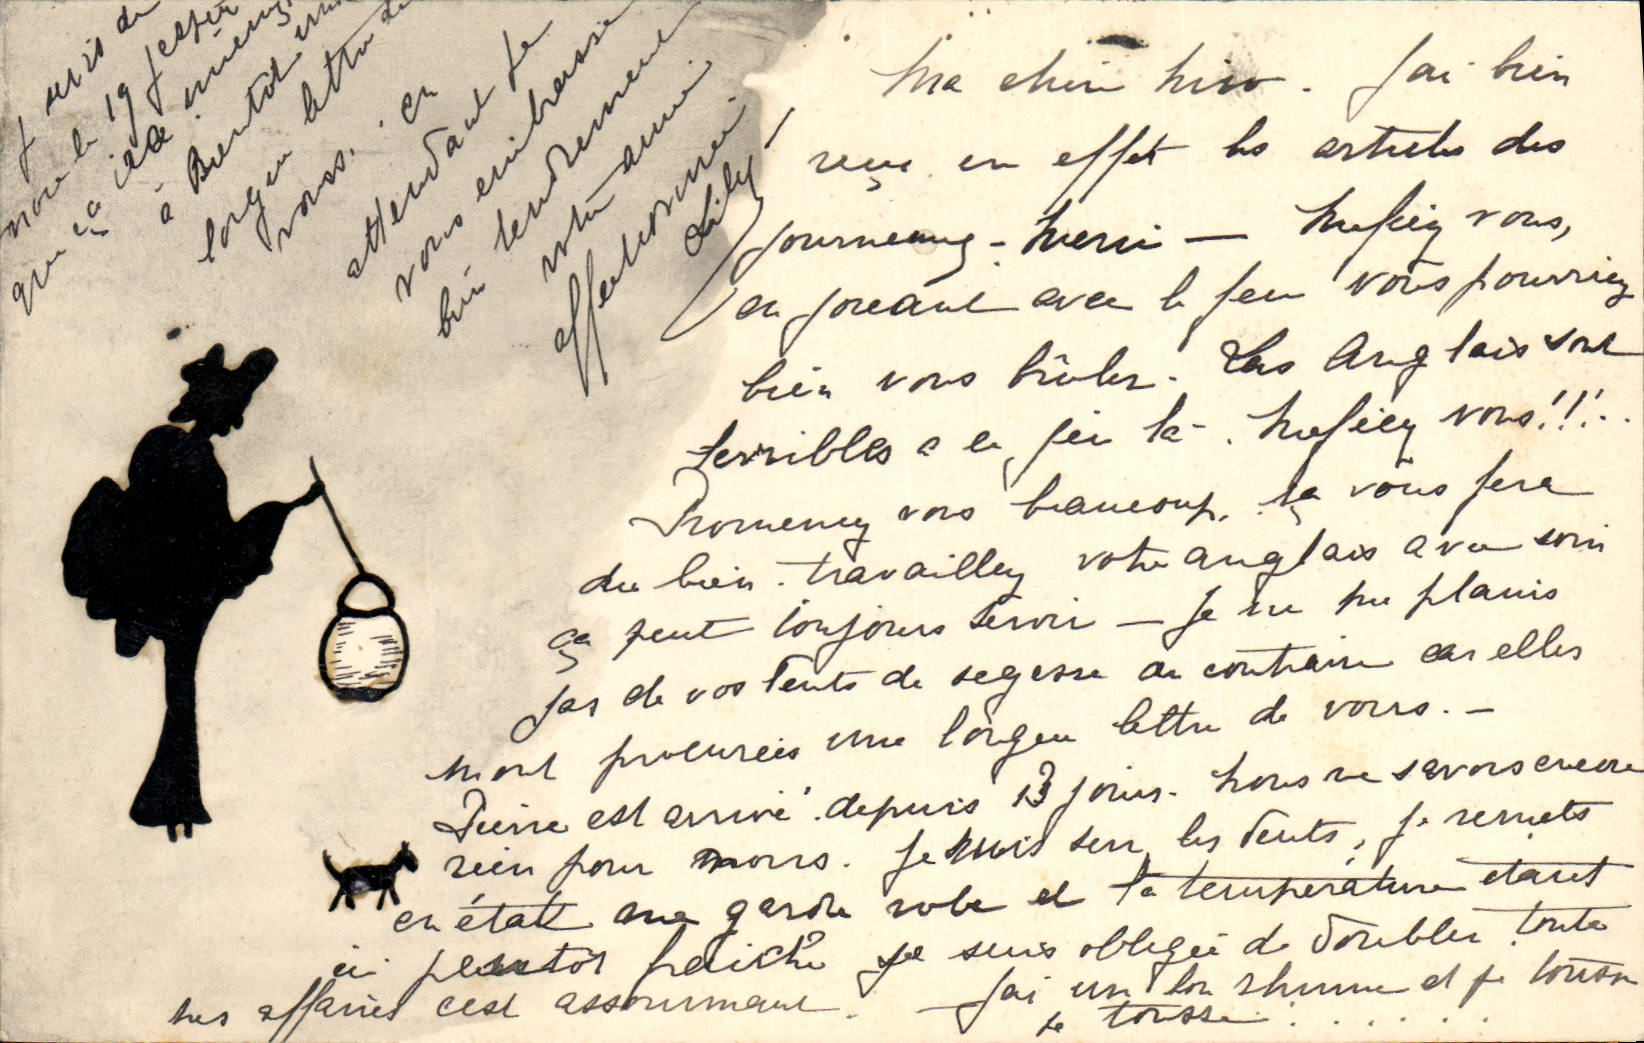 Ma chère
J'ai bien
reçu en effet les articles des
journeaux - Merci — Mefiez vous,
en joueant avec le feu vous pourriez
bien vous brûler. Les Anglais sont
terribles a ce jeu là. Mefiez vous!!!..
Promenez vous beaucoup, ça vous fera
du bien. travaillez votre anglais avec soin
ça peut toujours servir — Je ne me plains
pas de vos de sagesse au contraire car elles
m'ont procurées une longue lettre de vous. —
Pierre est arrivé depuis 13 jours. Nous ne savons encore
rien pour nous. Je suis sur les dents, je remets
en état ma garde robe et la température étant
ici plustôt fraîche je suis obligée de doubler toute
mes affaires c'est assommant. — J'ai un bon rhume et je tousse
je tousse . . . . . .
j suis de
le 19 j'espère
que ça
à Bientôt une
longue lettre de
vous. en
attendant je
vous embrasse
bien tendrement
votre amie
affectionnée
Lily